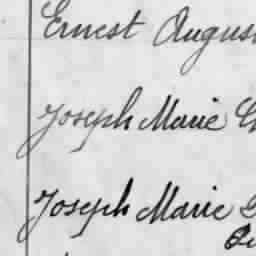 Ernest August
Joseph Marie
Joseph Marie